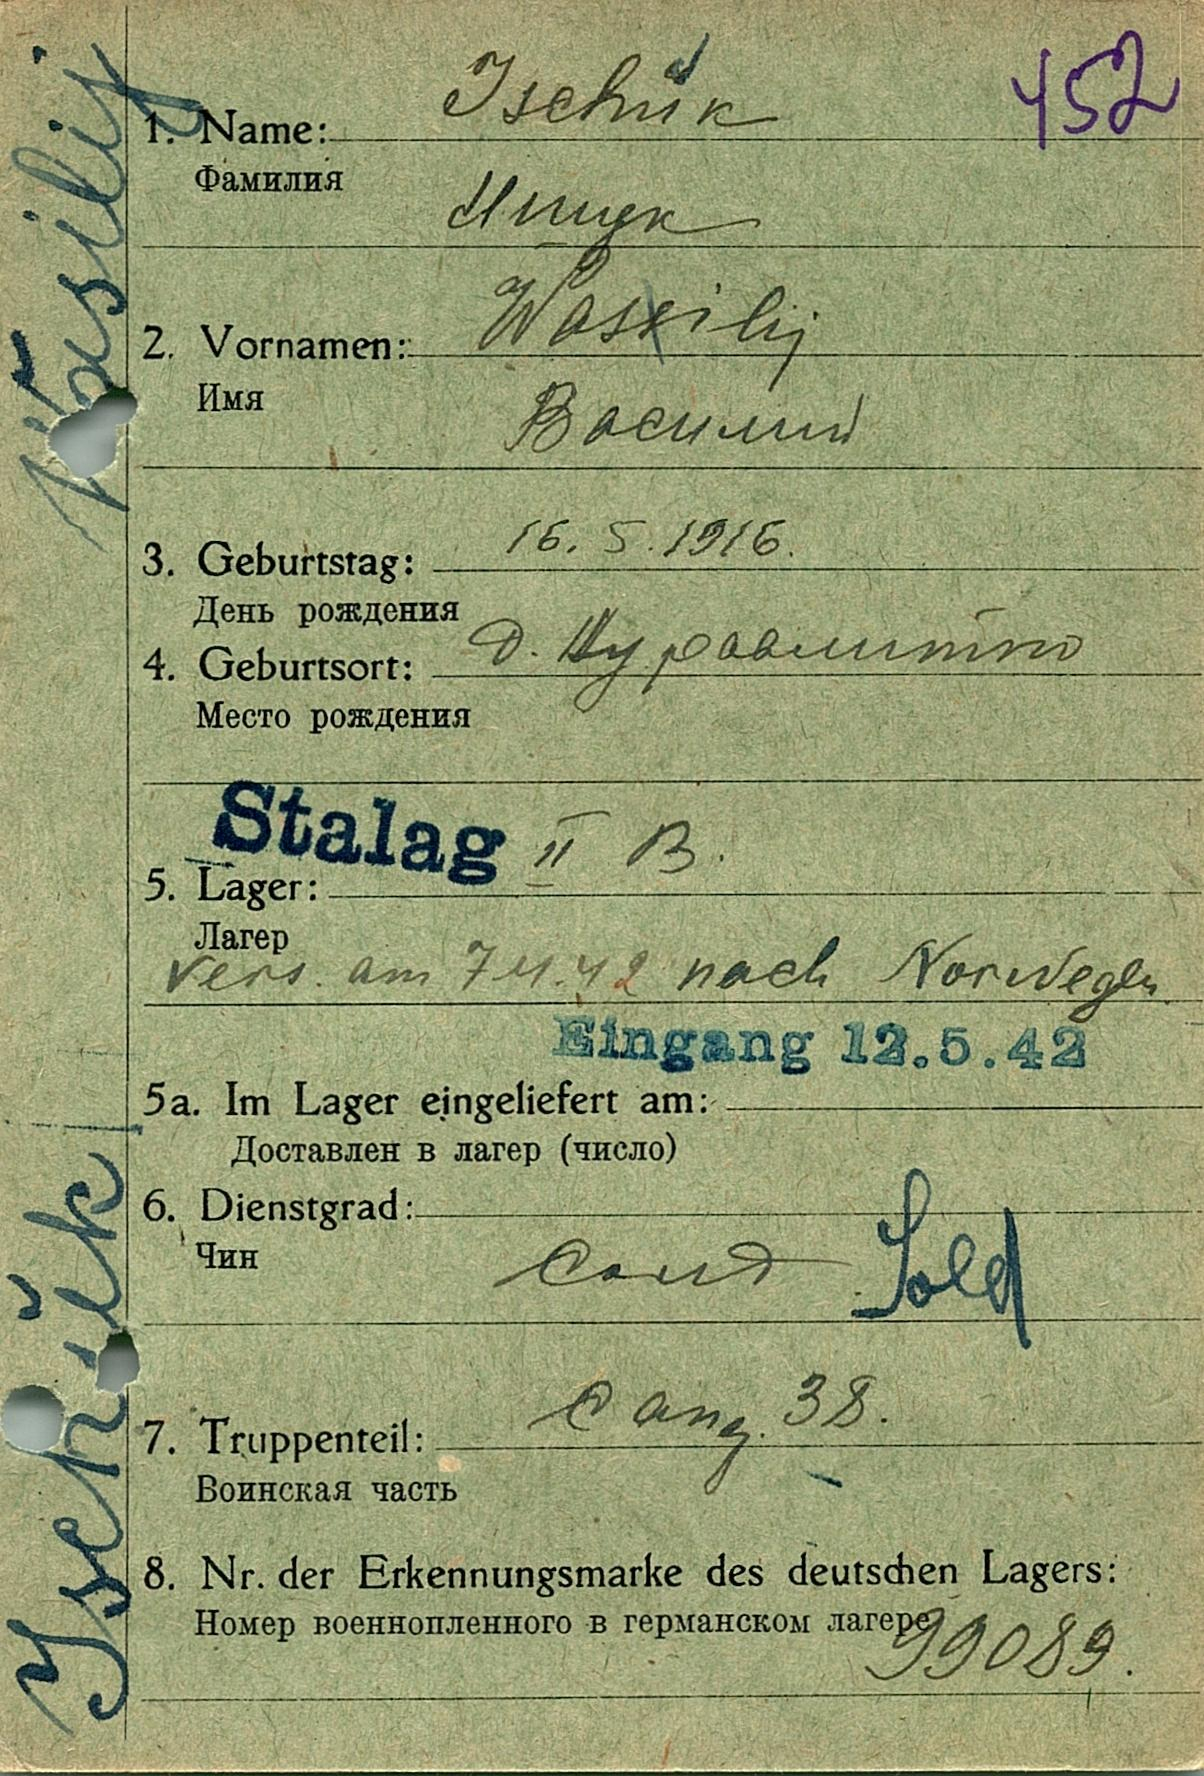 452
Ischuk
1. Name:
Фамилия
Ищук
Wassilij
2. Vornamen:
Имя
Василий
16. 5. 1916.
3. Geburtstag:
День рождения
4. Geburtsort: д.
Место рождения
Stalag II B.
5. Lager:
Лагер
Vers. am 7.4.42 nach Norwegen
Eingang 12.5.42
5a. Im Lager eingeliefert am:
Доставлен в лагер (число)
6. Dienstgrad:
Чин
солд Sold
38.
7. Truppenteil:
Воинская часть
8. Nr. der Erkennungsmarke des deutschen Lagers:
Номер военнопленного в германском лагере
99089.
Ischuk Wasilij